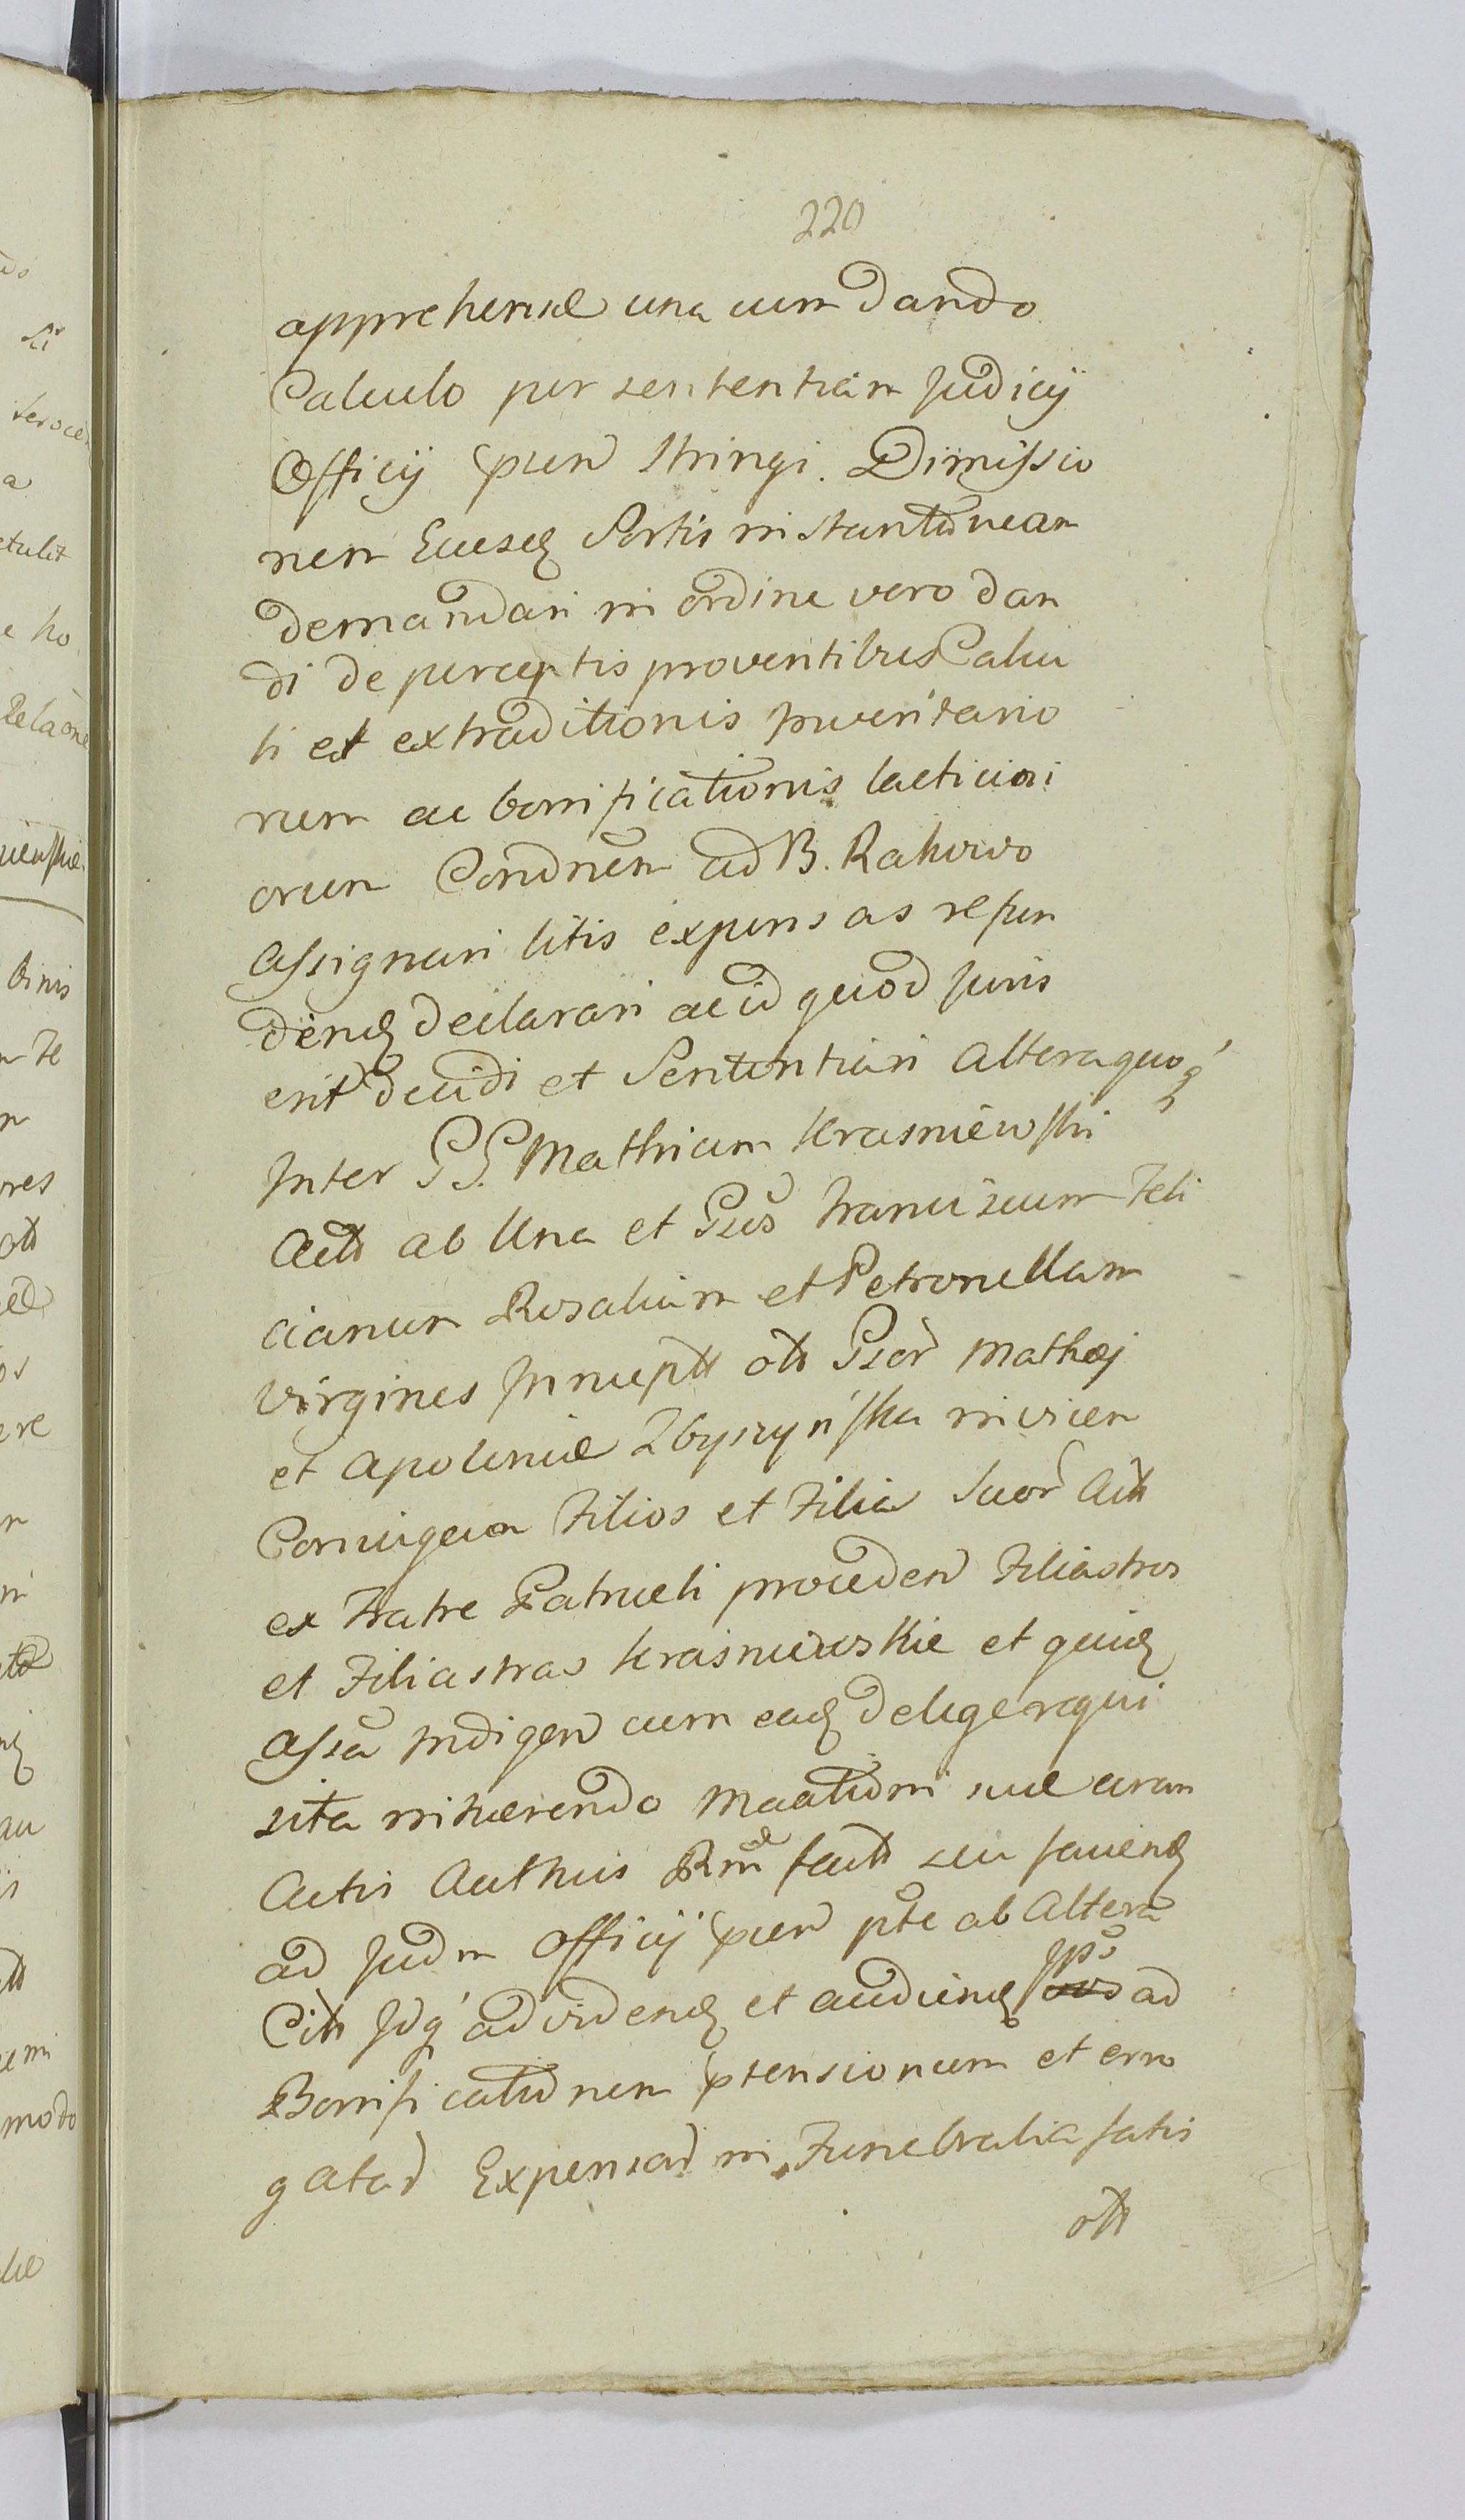 220
apprehensæ una cum dando
Calculo per sententiam Judicij
Officij pūen stringi. Dimissio
nem Eiusdę Sortis instantaneam
demandari in ordine vero dan
di de perceptis proventibus Calcu
li et extraditionis inventario
rum ac bonificationis laeticini
orum Condnem ad B. Rakowo
assignari litis expensas refun
dendę declarari ac id quod juris
erit decidi et Sententiari Altera quoq́
Inter GG. Mathiam Krasniewski
Actt ab Una et Gsos Franciscum Feli
cianum Rosaliam et Petronellam
virgines Innuptt ott Gsor Mathæj
et Apoloniæ Zbyszyńska invicem
Coniugum Filios et Filia Suor Actt
ex Fratre Patrueli proceden Filiastros
et Filiastras Krasniewskie et quidę
assa Indigen cum eadę de lege requi
sita inhærendo Maationi suæ coram
Actis Authcis Rmæ factt seu faciendę
ad Judm Officij pūen pte ab Altera
Citt Idq́ ad videndę et audiendę Ipos ad
Bonificationem ptensionum et erro
gatar Expensar in Funebralia satis
ott